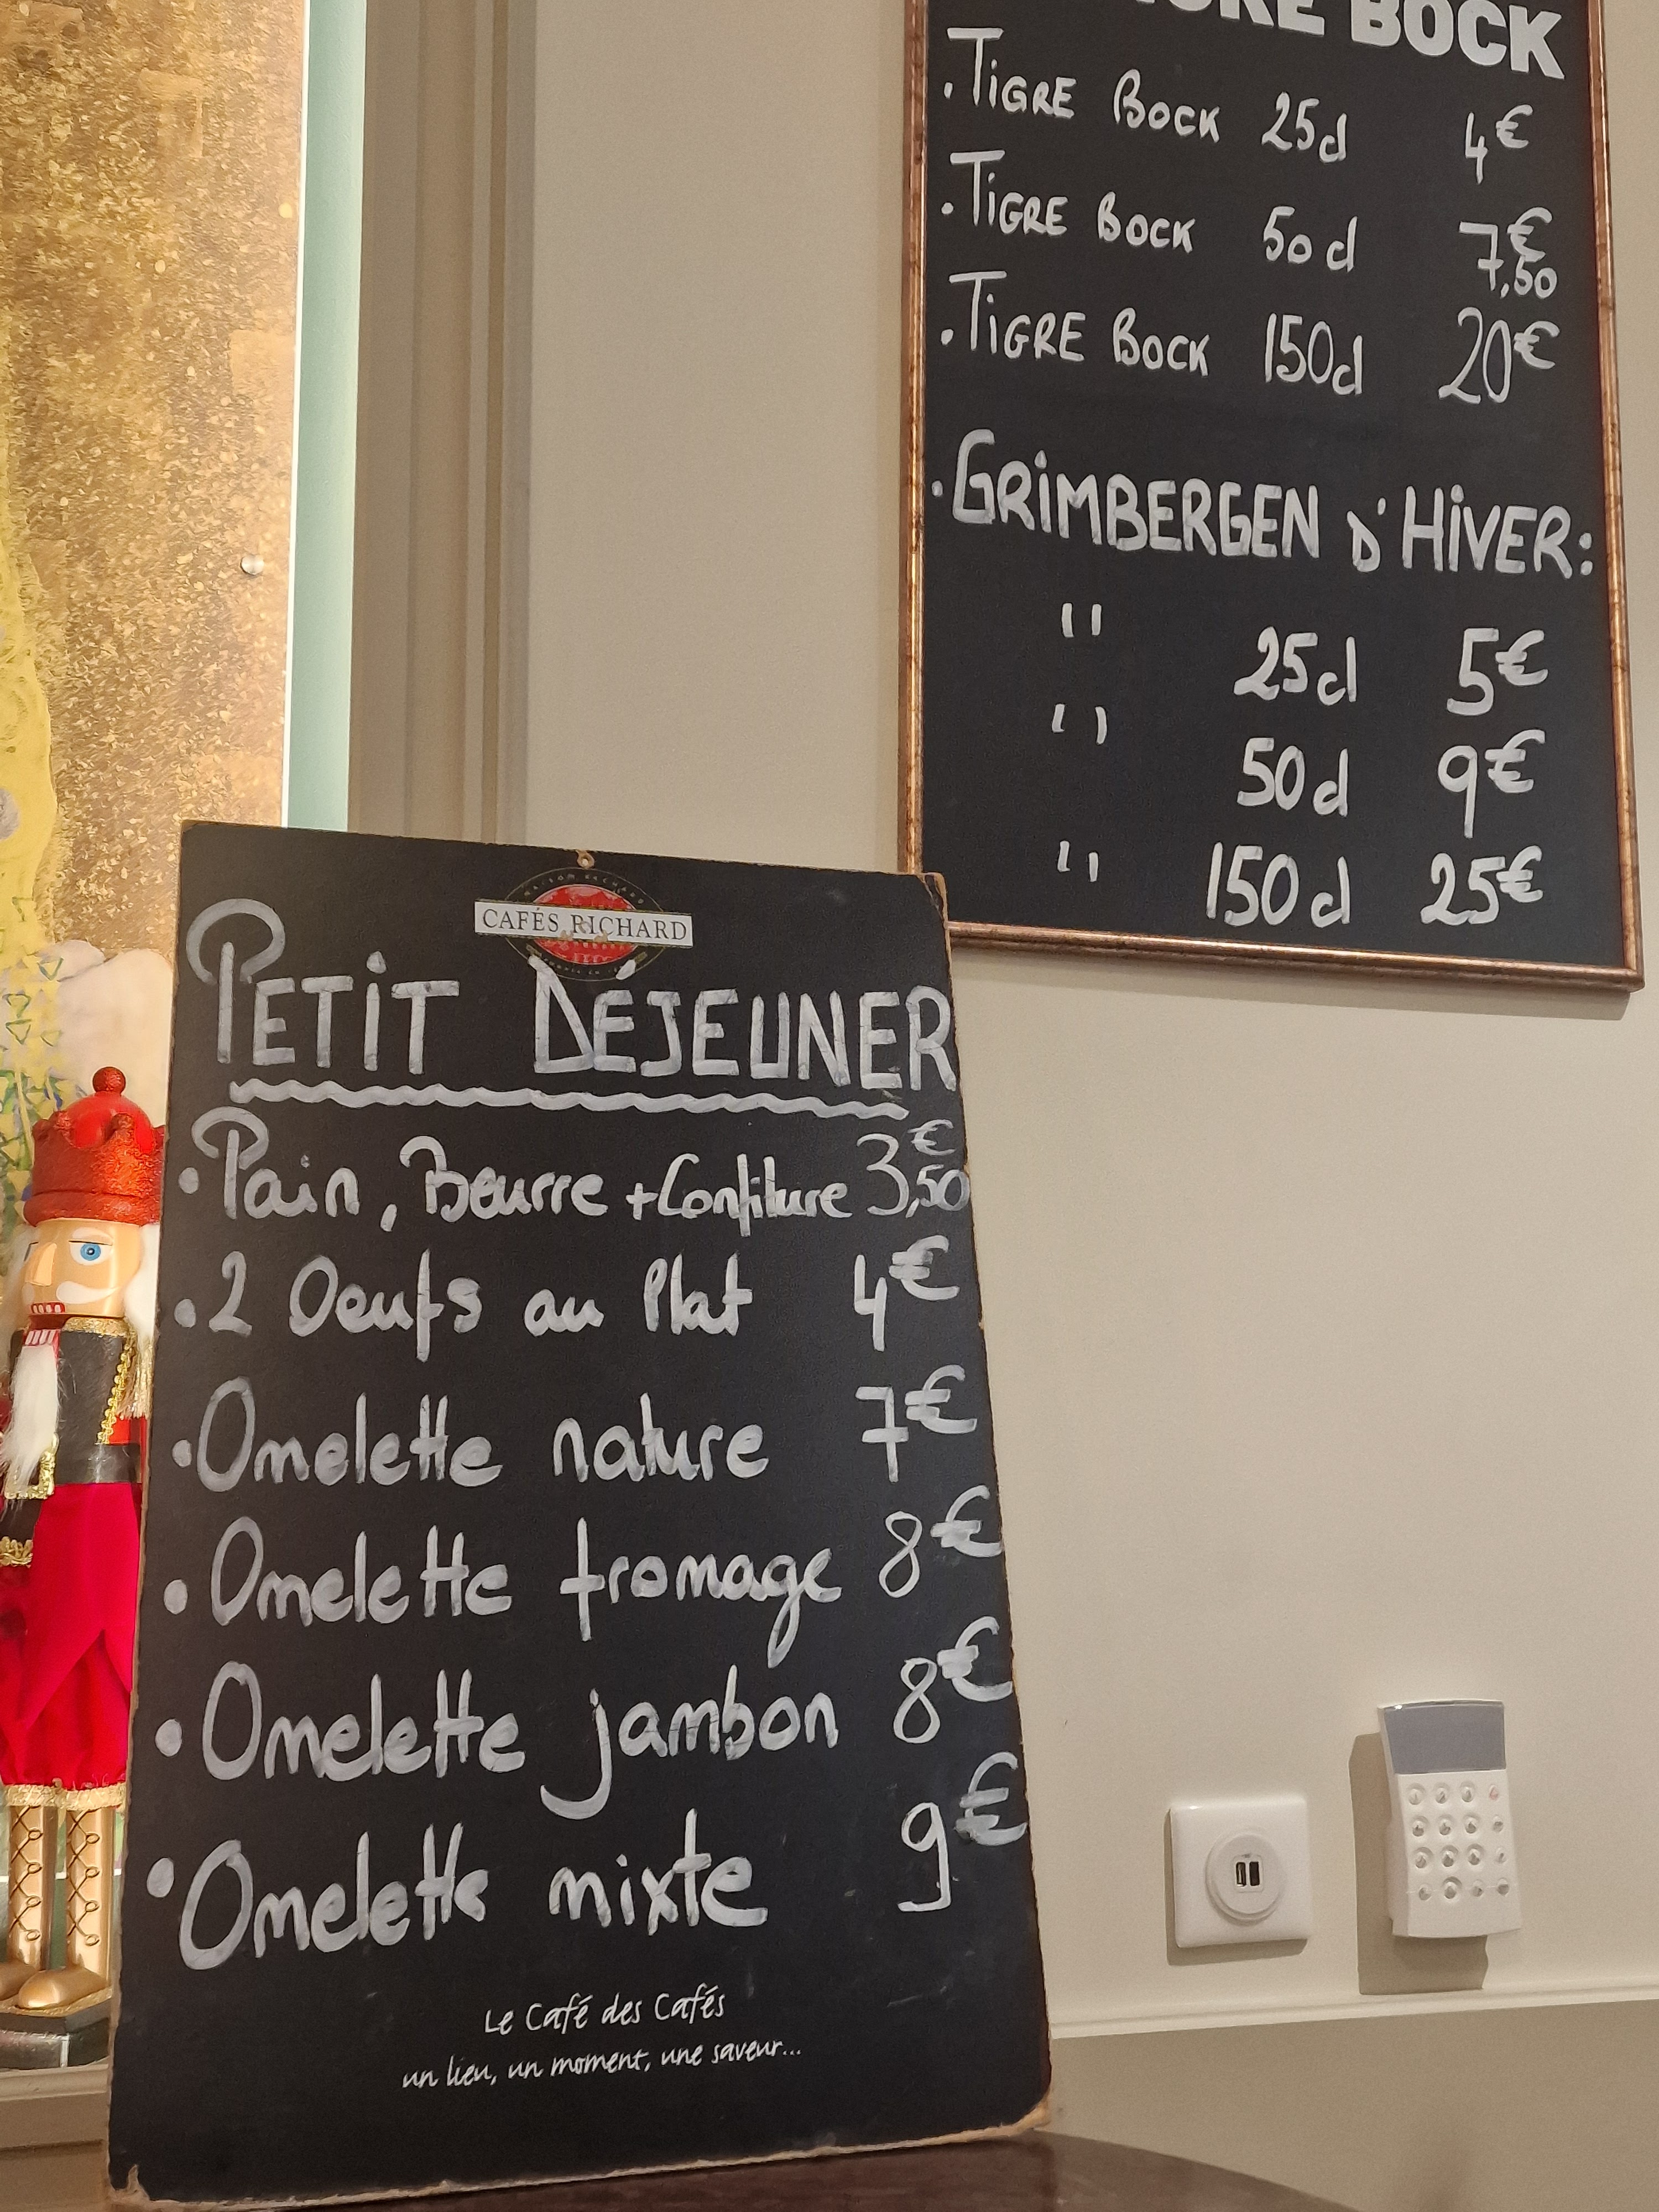 BOCK
.TiGRE BOCK 25cl 4€
.TiGRE BOCK 50cl 7€,50
.TiGRE BOCK 150cl 20€
.GRiMBERGEN D'HiVER:
" 25cl 5€
" 50cl 9€
" 150cl 25€
CAFÉS RICHARD
PETiT DÉJEUNER
•Pain, Beurre +Confiture 3€,50
•2 Oeufs au Plat 4€
•Omelette nature 7€
•Omelette fromage 8€
•Omelette jambon 8€
•Omelette mixte 9€
Le Café des Cafés
un lieu, un moment, une saveur...